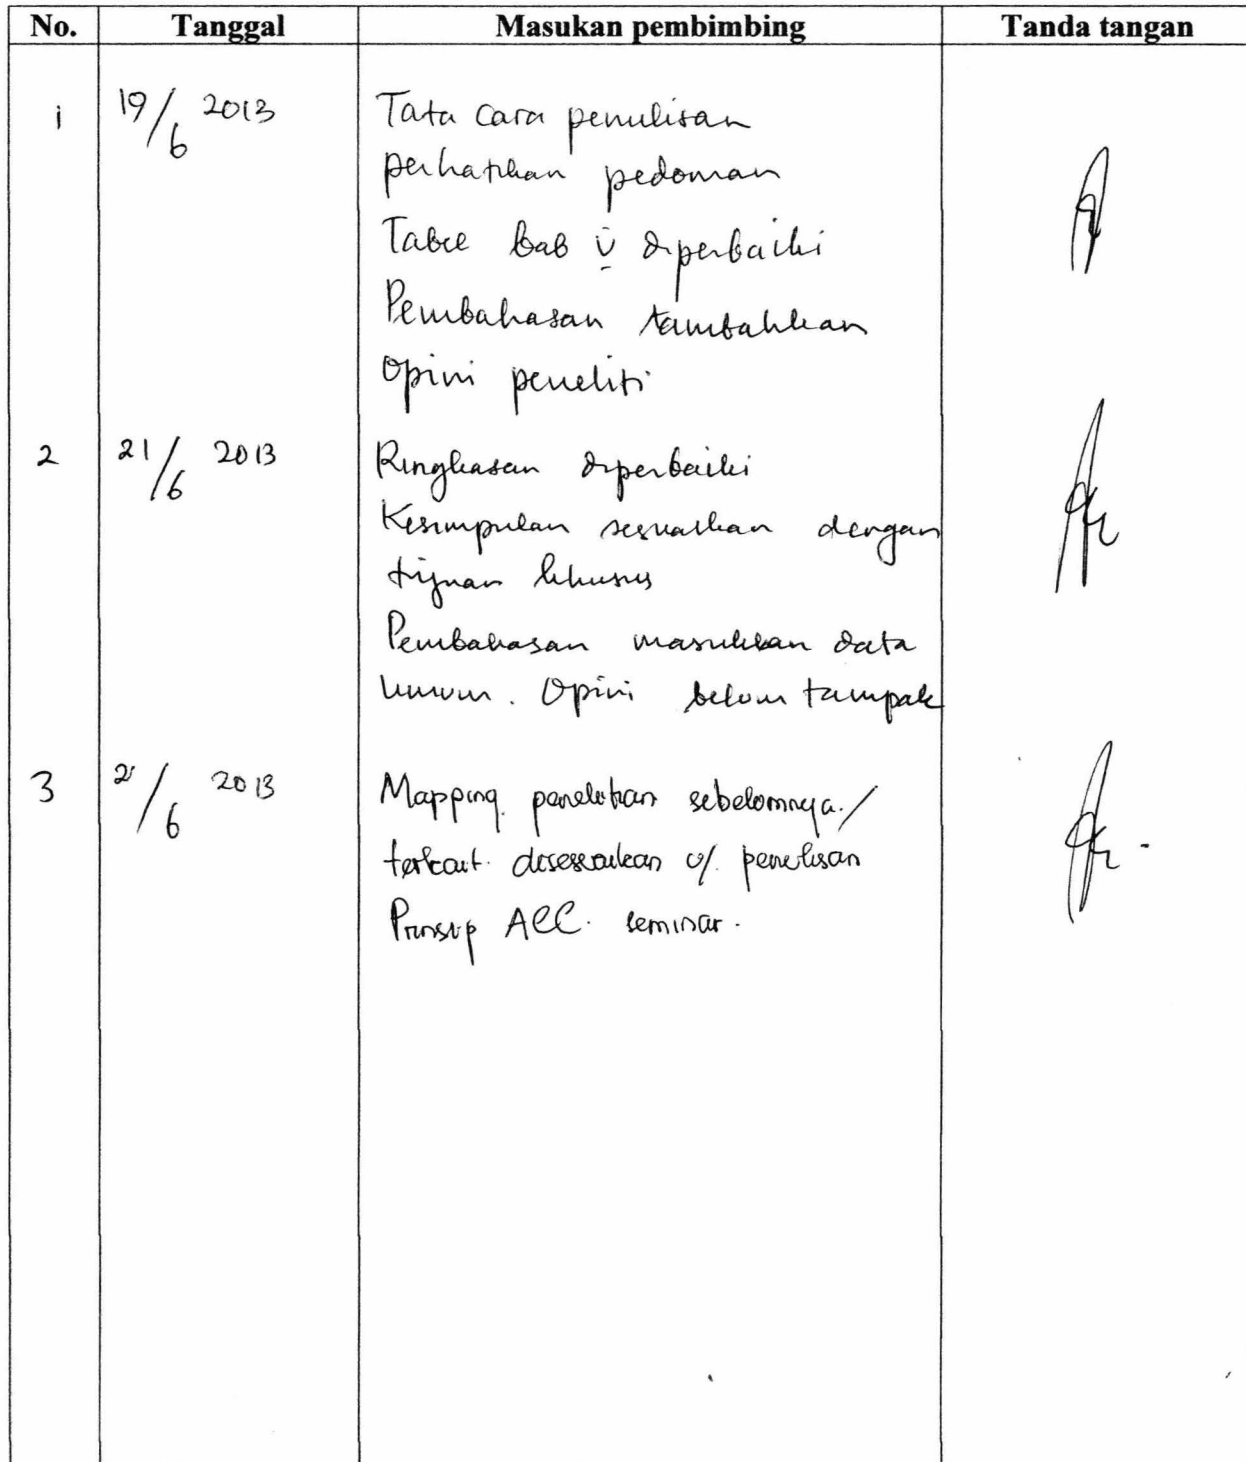 No. Tanggal Masukan pembimbing Tanda tangan
1 19/6 2013 Tata cara penulisan
perhatikan pedoman
Tabel bab V diperbaiki
Pembahasan tambahkan
opini peneliti
2 21/6 2013 Ringkasan diperbaiki
Kesimpulan sesuaikan dengan
tujuan khusus
Pembahasan masukkan data
umum. Opini belum tampak
3 /6 2013 Mapping penelitian sebelumnya /
terkait disesuaikan penulisan
Prinsip ACC. seminar.